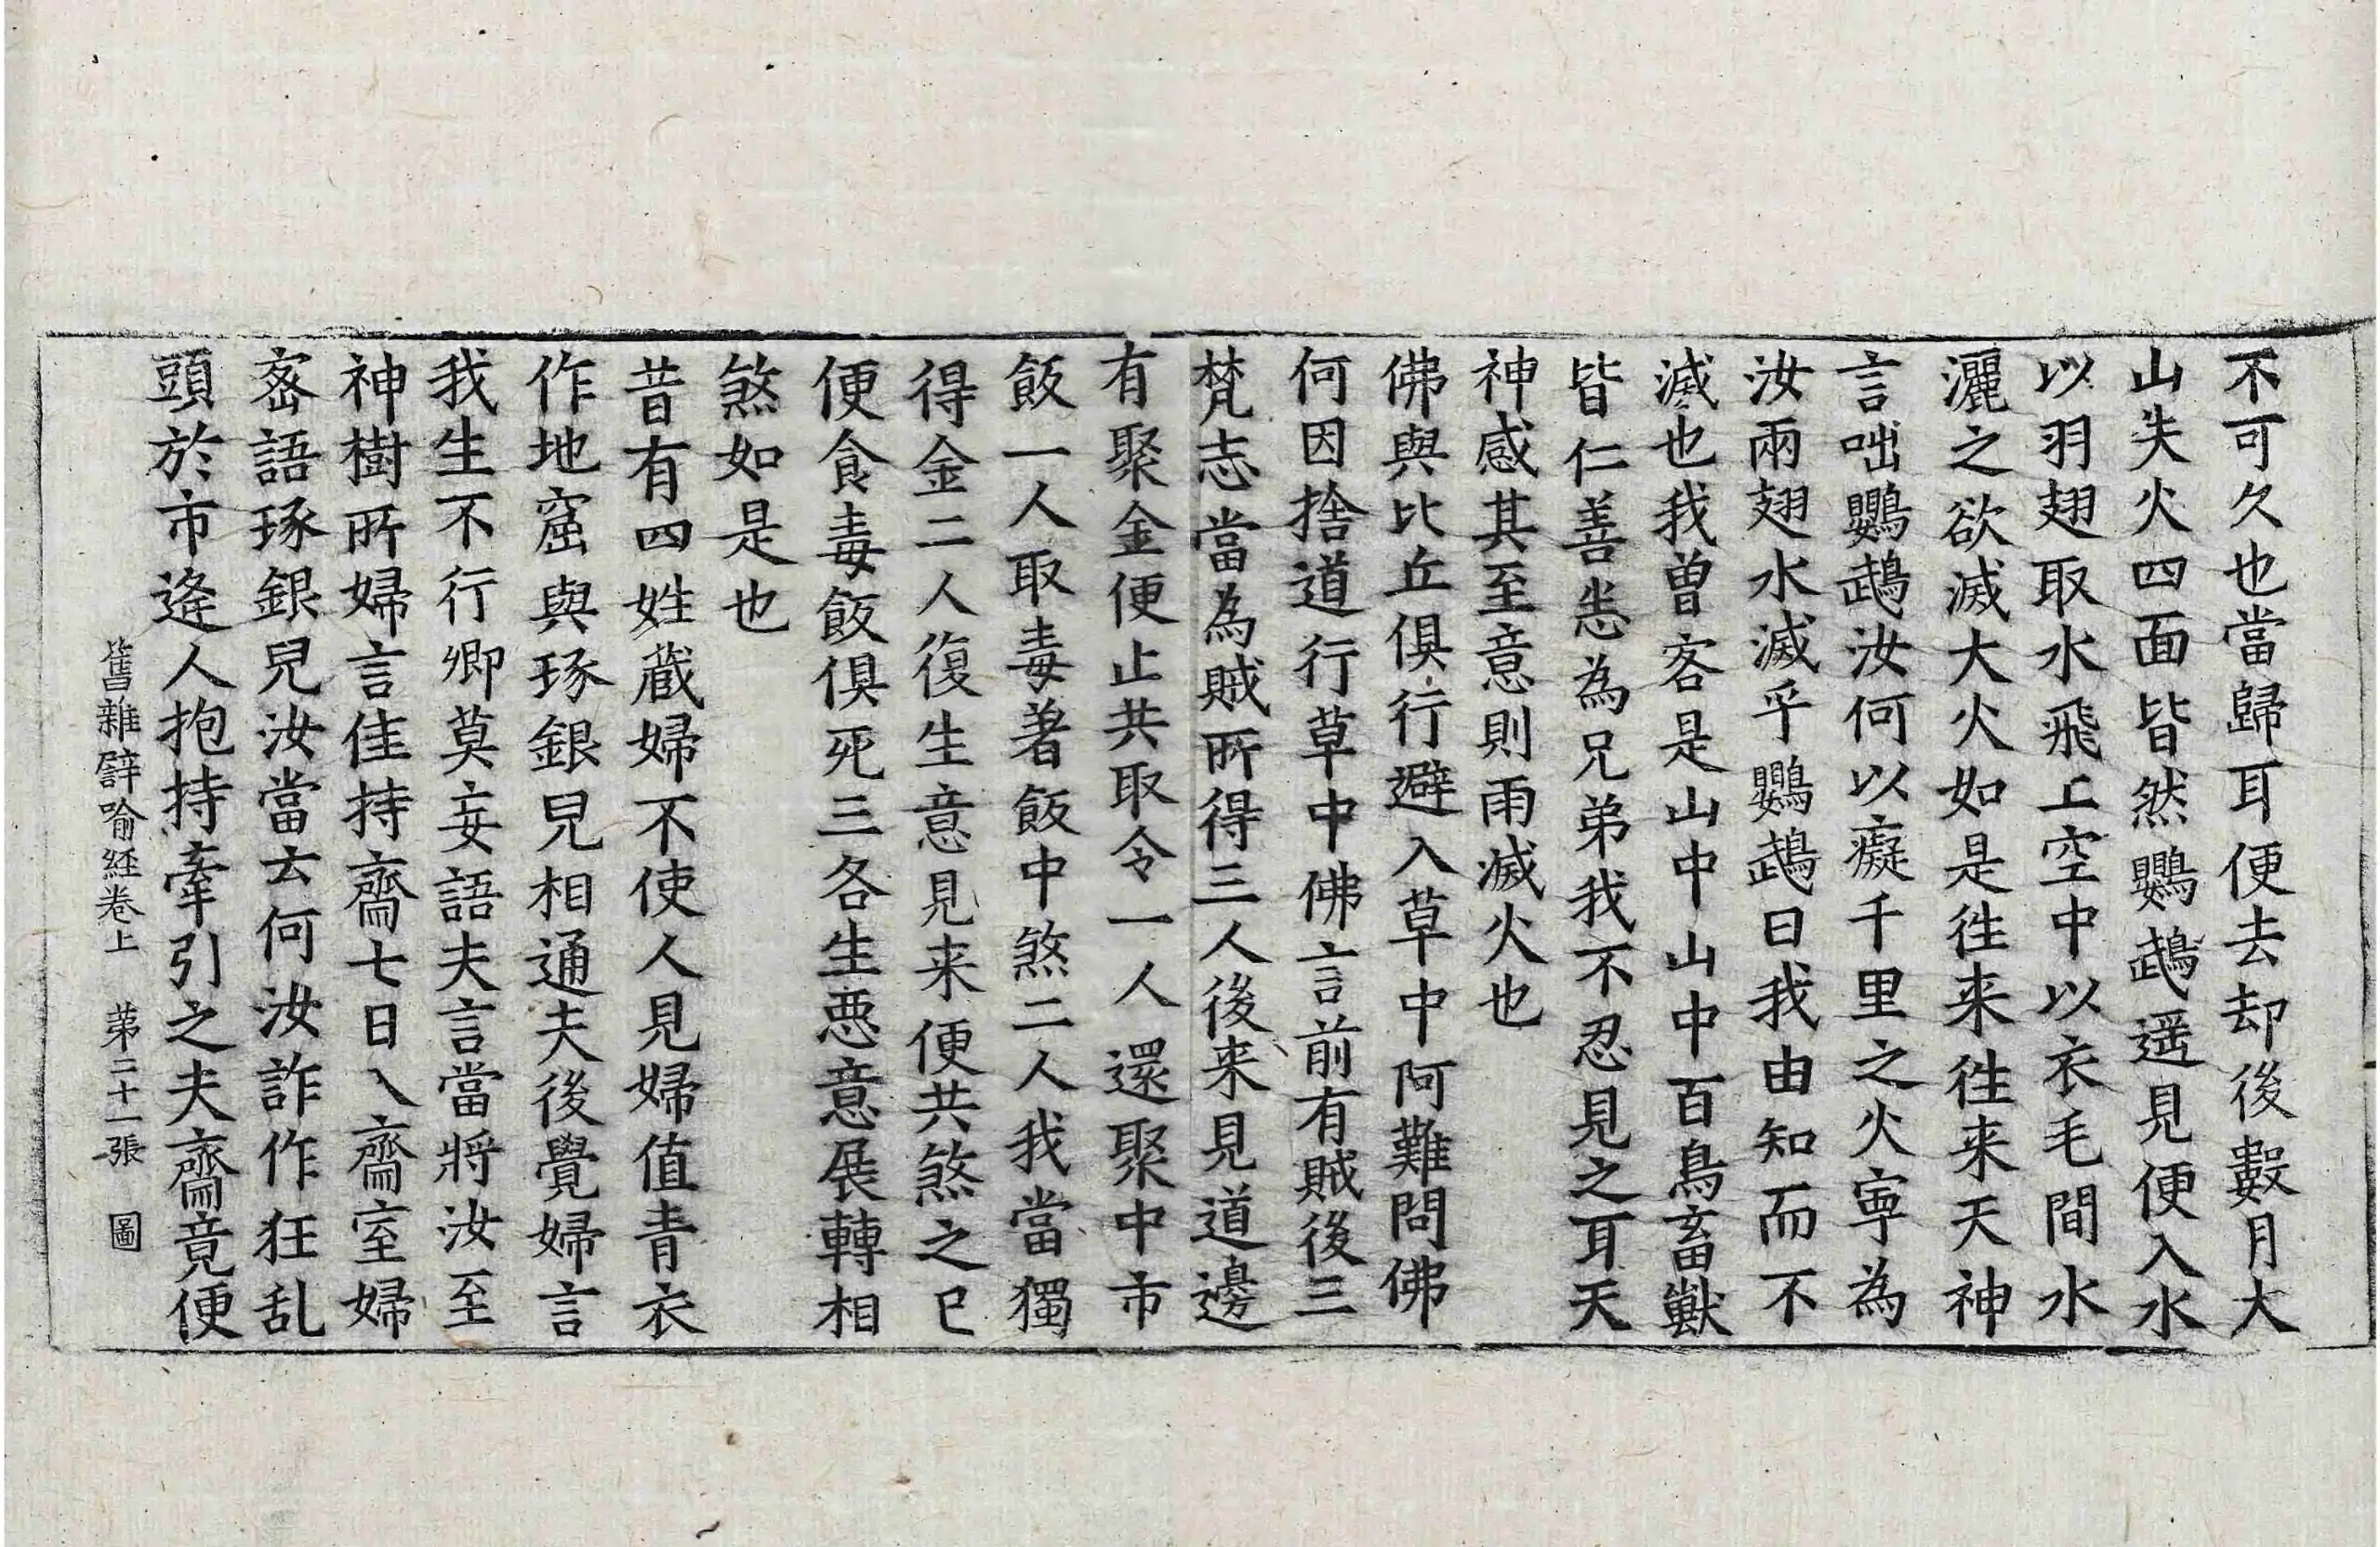 不可久也當歸耳便去却後數月大
山失火四面皆然鸚鵡遥見便入水
以羽翅取水飛上空中以衣毛間水
灑之欲滅大火如是往来往来天神
言咄鸚鵡汝何以癡千里之火寕為
汝兩翅水滅乎鸚鵡曰我由知而不
滅也我曽客是山中山中百鳥畜獸
皆仁善悉為兄弟我不忍見之耳天
神感其至意則雨滅火也
佛與比丘俱行避入草中阿難問佛
何因捨道行草中佛言前有賊後三
梵志當為賊所得三人後来見道邊
有聚金便止共取令一人還聚中市
飯一人取毒著飯中煞二人我當獨
得金二人復生意見来便共煞之已
便食毒飯俱死三各生恶意展轉相
煞如是也
昔有四姓蔵婦不使人見婦值青衣
作地窟與琢銀兒相通夫後覺婦言
我生不行卿莫妄語夫言當將汝至
神樹所婦言佳持齋七日入齋室婦
宻語琢銀兒汝當云何汝詐作狂乱
頭於市逄人抱持牽引之夫齋竟便
舊雜譬喻経卷上 苐二十一張 圖